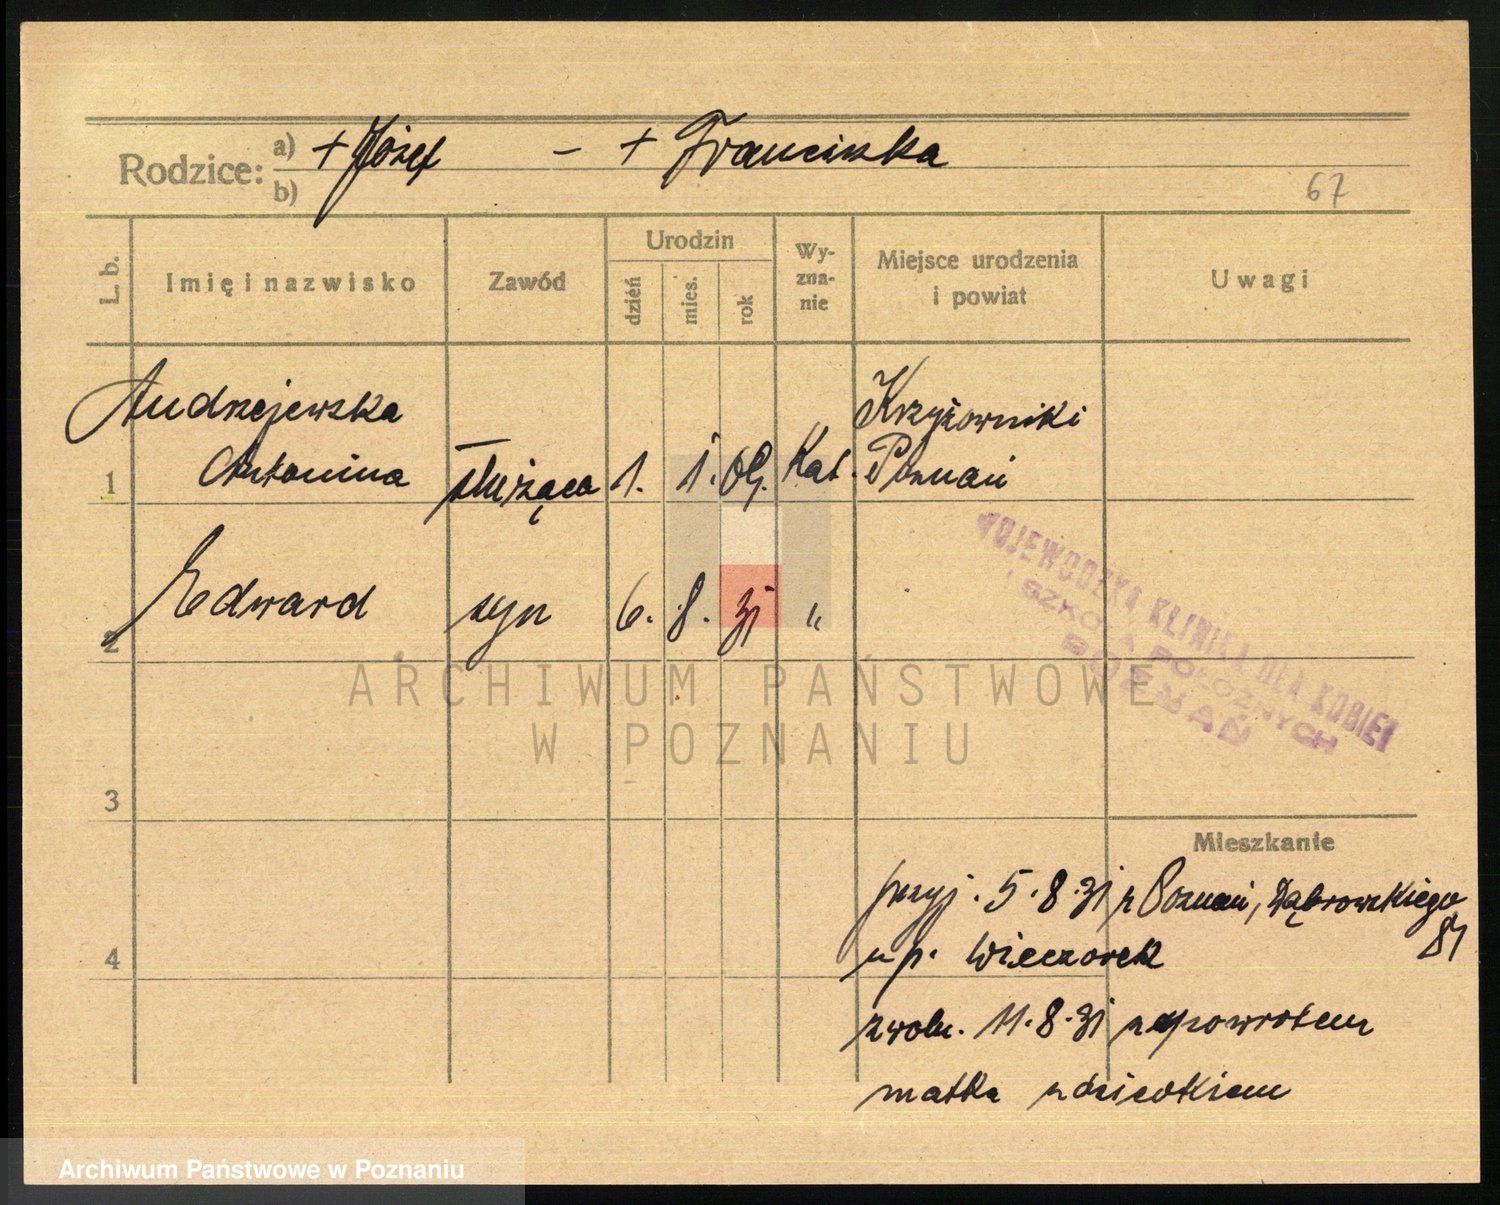 Rodzice: a) + Józef - + Franciszka
b)
67
L. b. Imię i nazwisko Zawód Urodzin dzień mies. rok Wy-zna-nie Miejsce urodzenia i powiat Uwagi
Andrzejewska Krzyżowniki
1 Antonina służąca 1. 1. 09. Kat. Poznań
2 Edward syn 6. 8. 31 "
WOJEWÓDZKA KLINIKA DLA KOBIET
I SZKOŁA POŁOŻNYCH
POZNAŃ
ARCHIWUM PAŃSTWOWE
W POZNANIU
3
Mieszkanie
przyj. 5.8.31 z Poznań, Dąbrowskiego
4 u p. Wieczorek
zwoln. 11.8.31 z powrotem
matka z dzieckiem
Archiwum Państwowe w Poznaniu